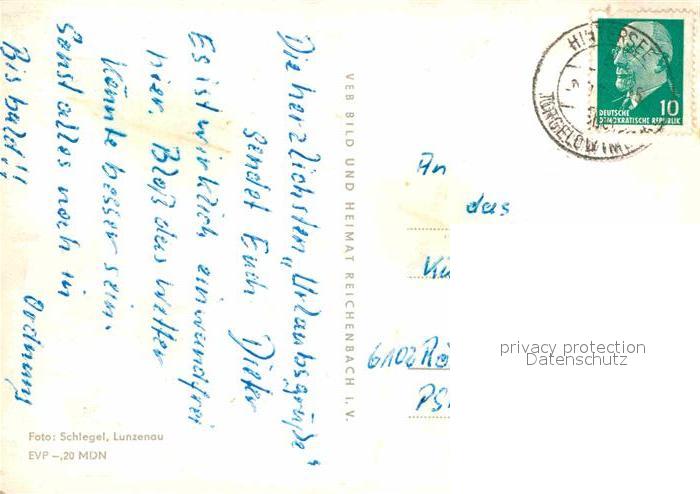 Die herzlichsten „Urlaubsgrüße“
sendet Euch Dieter
Es ist wirklich einwandfrei
hier. Bloß das Wetter
könnte besser sein.
Sonst alles noch in
Ordnung
Bis bald!!
VEB BILD UND HEIMAT REICHENBACH I. V.
Foto: Schlegel, Lunzenau
EVP –,20 MDN
HINTERSEE
TORGELOW
10
DEUTSCHE
DEMOKRATISCHE REPUBLIK
An
das
6102 Rö
PS
privacy protection
Datenschutz